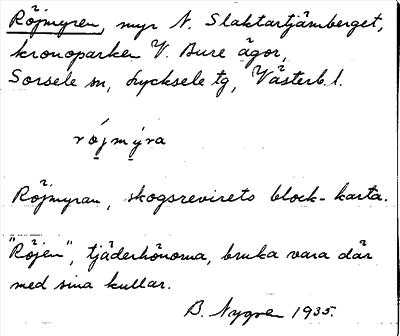 Röjmyren, myr N. Slaktartjämberget,
kronoparken V. Bure ägor,
Sorsele sn, Lycksele tg, Västerb. l.
rójmýra
Röjmyran, skogsrevirets block-karta.
"Röjen", tjäderhönorna, bruka vara där
med sina kullar.
B. Nygren 1935.